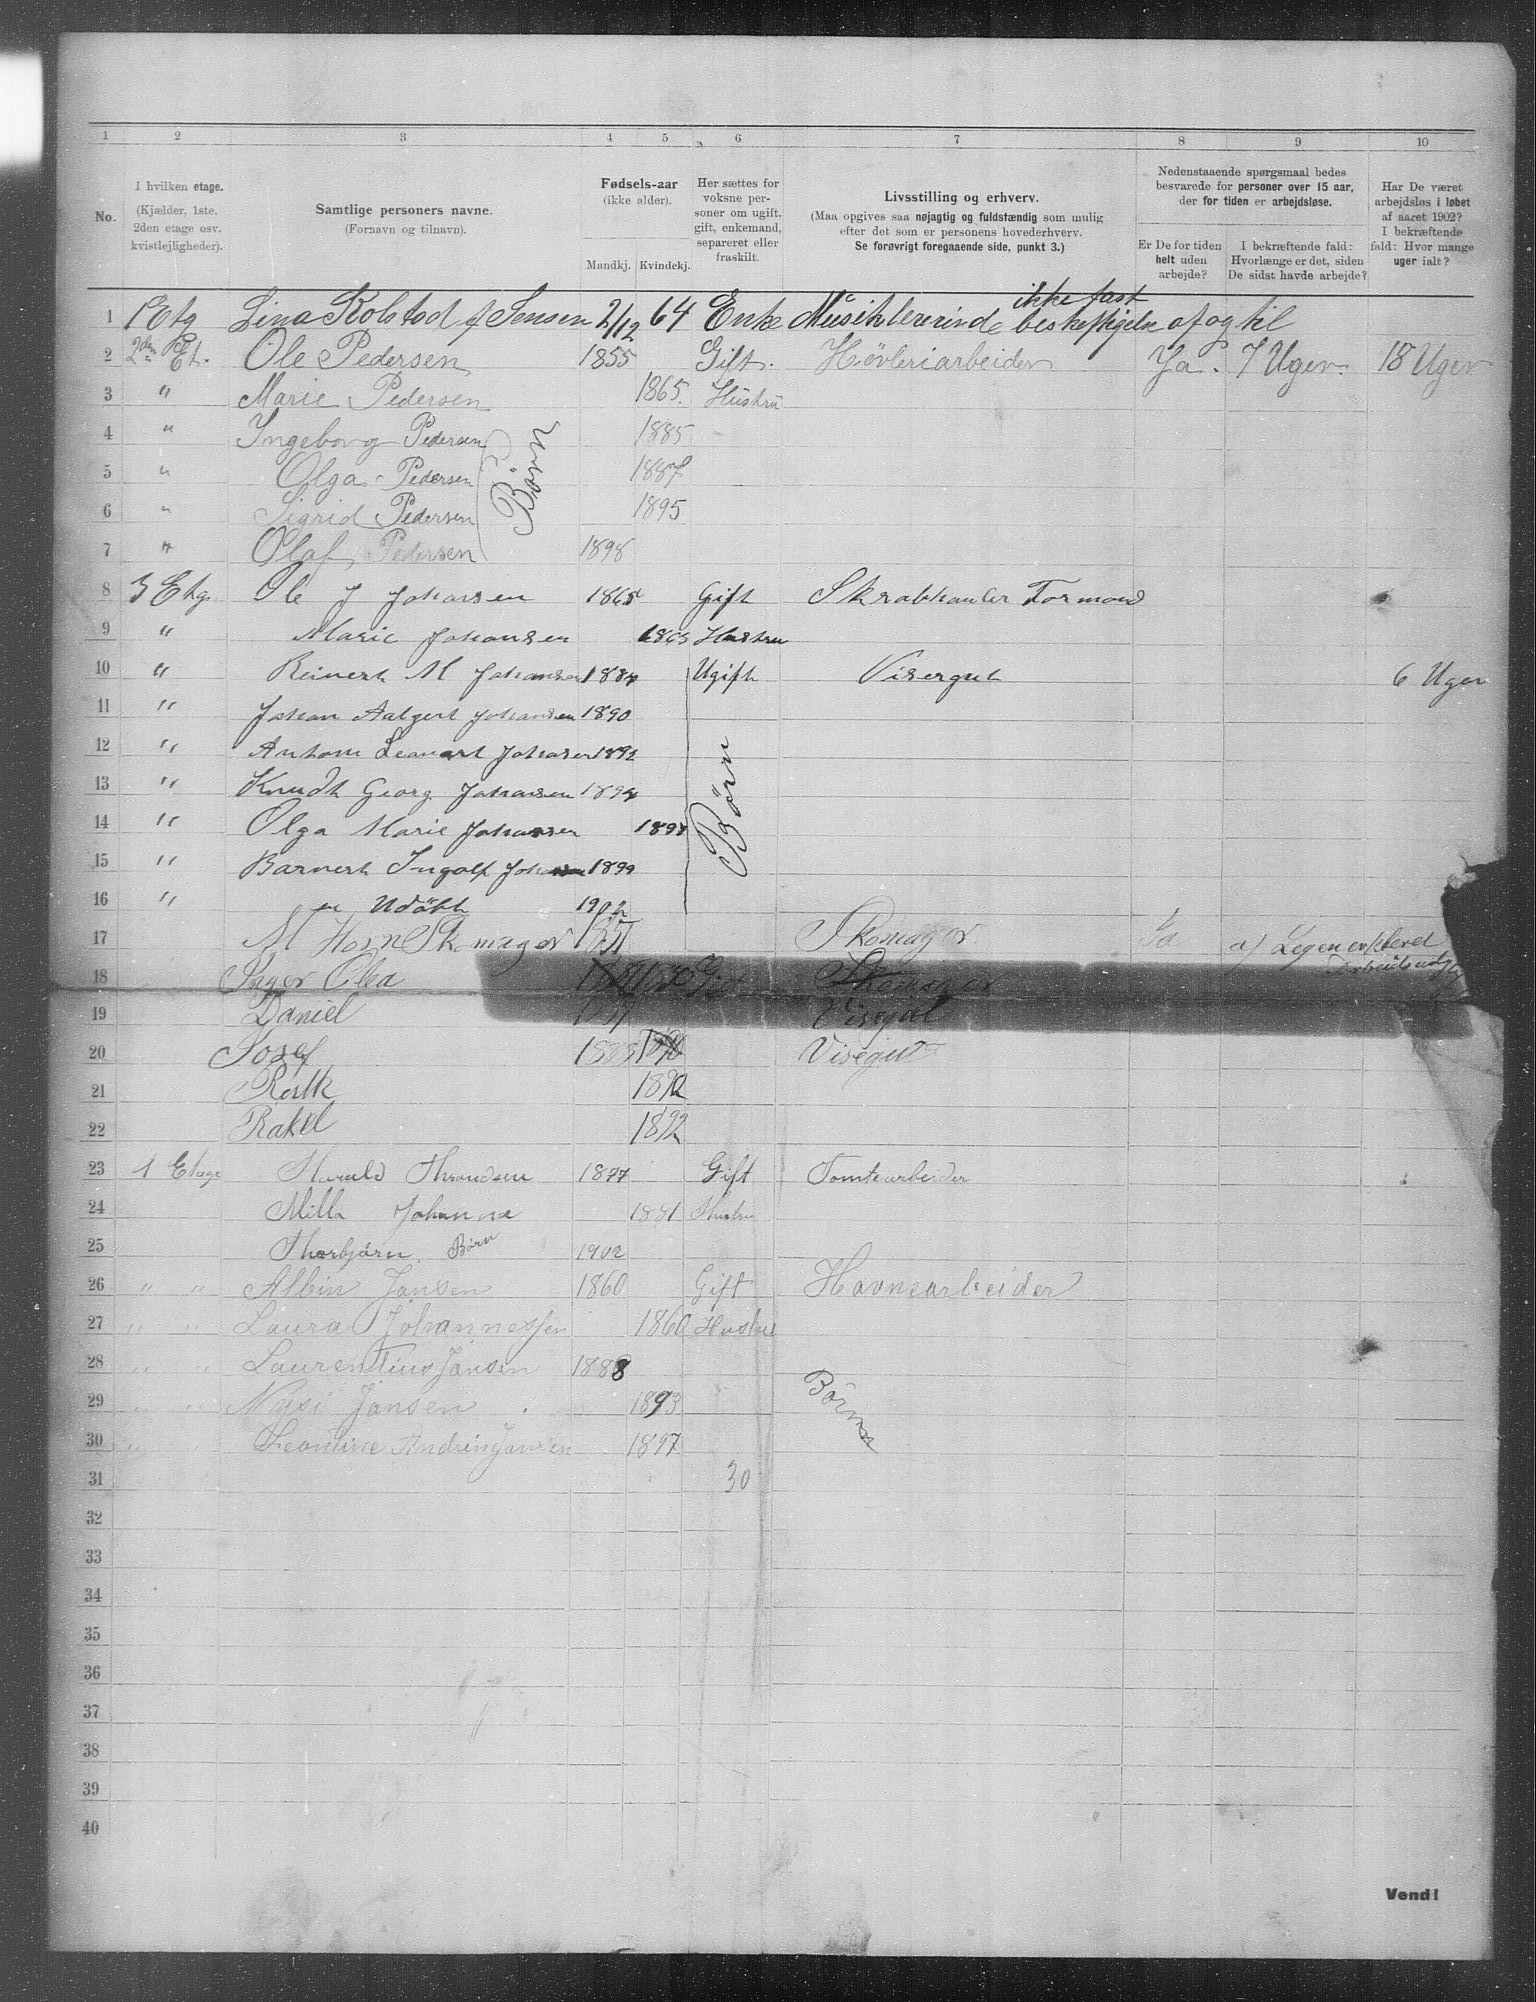 1 2 3 4 5 6 7 8 9 10
No.
I hvilken etage.
(Kjælder, 1ste,
2den etage osv.
kvistlejligheder).
Samtlige personers navne.
(Fornavn og tilnavn).
Fødsels-aar
(ikke alder).
Mandkj. Kvindekj.
Her sættes for
voksne per-
soner om ugift,
gift, enkemand,
separeret eller
fraskilt.
Livsstilling og erhverv.
(Maa opgives saa nøjagtig og fuldstændig som mulig
efter det som er personens hovederhverv.
Se forøvrigt foregaaende side, punkt 3.)
Nedenstaaende spørgsmaal bedes
besvarede for personer over 15 aar,
der for tiden er arbejdsløse.
Er De for tiden
helt uden
arbejde?
I bekræftende fald:
Hvorlænge er det, siden
De sidst havde arbejde?
Har De været
arbejdsløs i løbet
af aaret 1902?
I bekræftende
fald: Hvor mange
uger ialt?
ikke fast
1 1 Etg Lina Kolstad f Jensen 2/12 64 Enke Musiklererinde beskeftigelse af og til
2 2den Et. Ole Pedersen 1855 Gift. Hövleriarbeider Ja. 7 Uger. 18 Uger
3 " Marie Pedersen 1865. Hustru
4 " Ingeborg Pedersen 1885
5 " Olga Pedersen Børn 1887
6 " Sigrid Pedersen 1895
7 " Olaf Pedersen 1898
8 3 Etg. Ole J Johansen 1865 Gift Formand
9 " Marie Johansen 1865 Hustru
10 " Reinert M Johansen 1884 Ugift Visergut 6 Uger
11 " Johan Johansen 1890
12 " Johansen 1892
13 " Knudt Georg Johansen 1894 Børn
14 " Olga Marie Johansen 1898
15 " Ingolf Johansen 1899
16 " en Udöbt 1902
17 M Horn Skomager Skomager Ja a) Legen
18 Inger Olea Gift
19 Daniel
20 Josef Visegut
21 1890
22 Rakel 1892
23 1 Etage Harald Throndsen 1877 Gift Tomtearbeider
24 Milla Johanna 1881 Hustru
25 Thorbjørn Børn 1902
26 " " Albin Jansen 1860 Gift Havnearbeider
27 " " Laura Johannessen 1860 Hustru
28 " " Laurentius Jansen 1888
29 " Jansen 1893 Børnn
30 " " Leontine Andrin Jansen 1897
31 30
32
33
34
35
36
37
38
39
40
Vend!